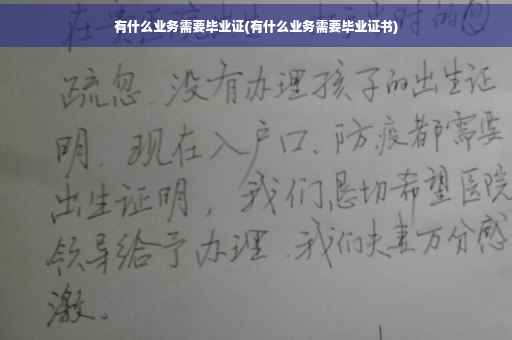 有什么业务需要毕业证(有什么业务需要毕业证书)
时的
疏忽、没有办理孩子的出生证
明、现在入户口、防疫都需要
出生证明，我们恳切希望医院
领导给予办理、我们夫妻万分感
激。